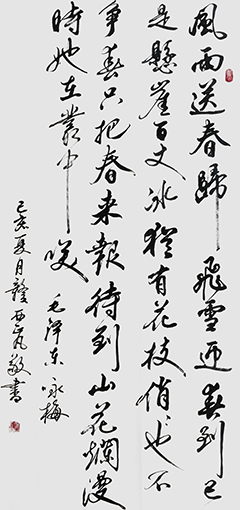 風雨送春歸飛雪迎春到已
是懸崖百丈冰猶有花枝俏〻也不
爭春只把春来報待到山花爛漫
時她在叢中咲
毛泽东咏梅
己亥夏月贛西書